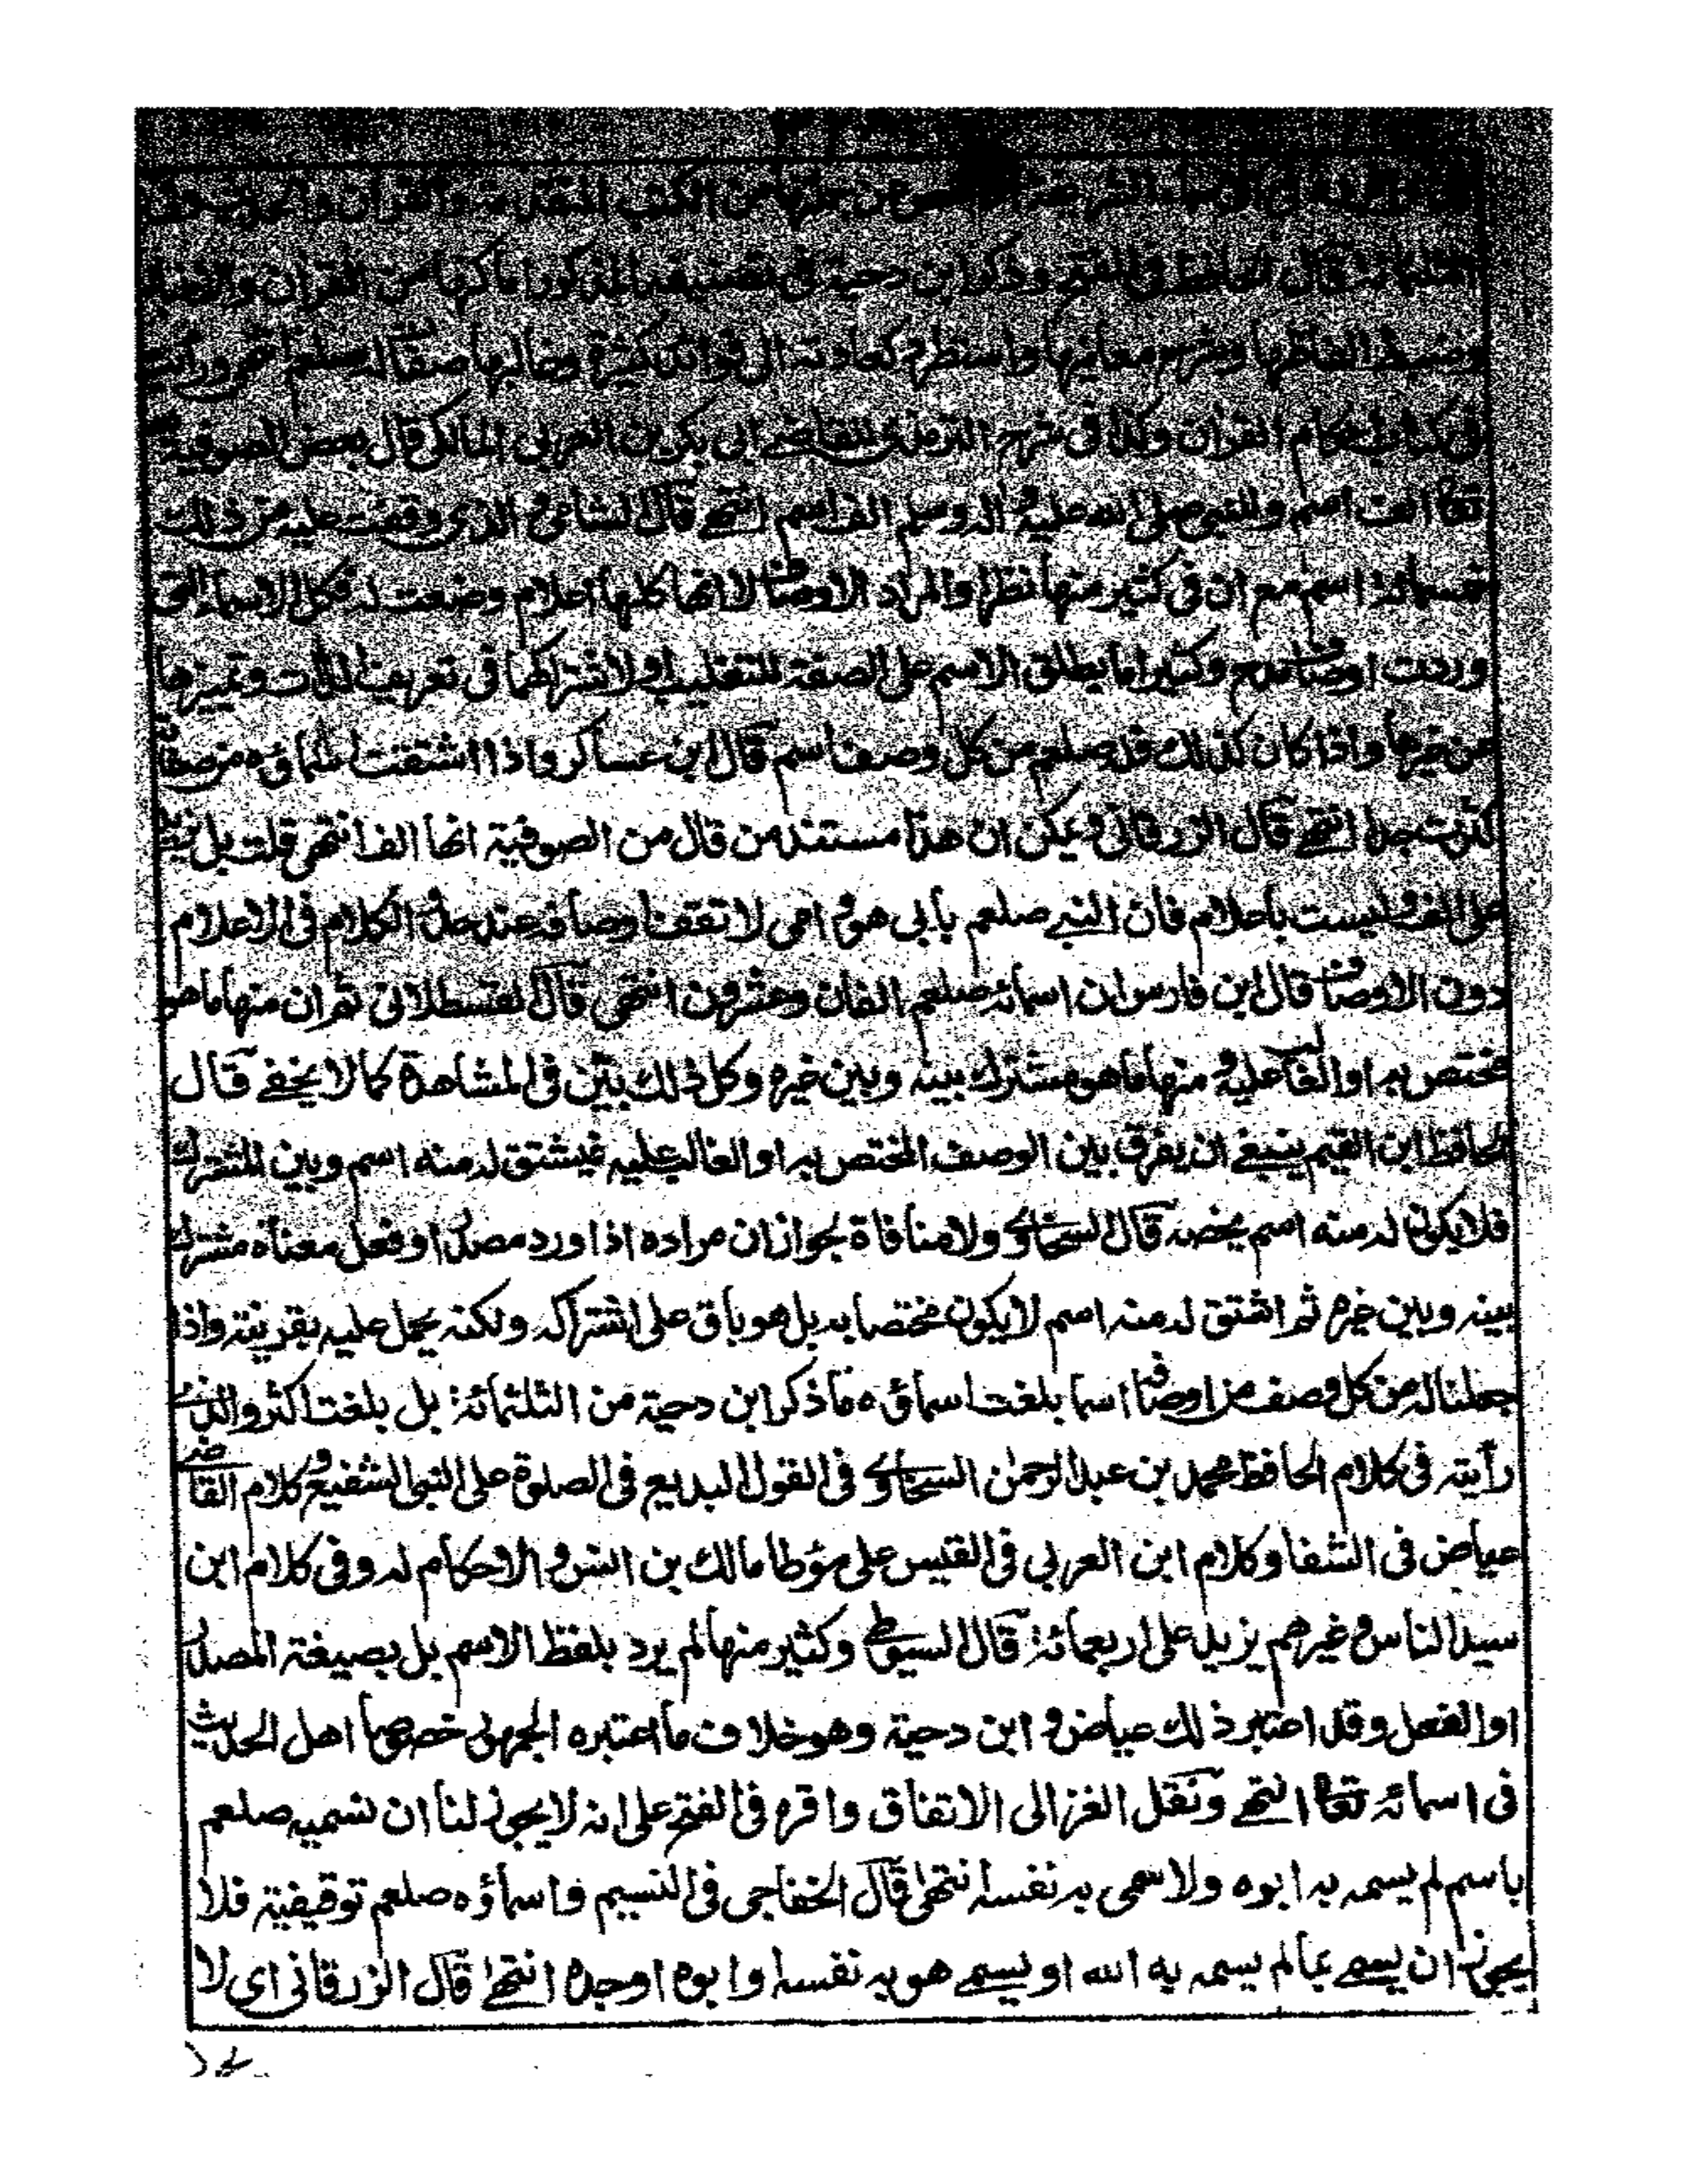 من الكتب المتقدمة والقرآن والحديث
قال الحافظ في الفتح وذكر ابن دحية في تصنيفه المذكور اماكنها من القرآن والاخبار
وضبط الفاظها وشرح معانيها واستطرد كعادته الى فوائد كثيرة وغالبها صفاته صلعم انتهى ورأيت
في كتاب احكام القرآن وكذا في شرح الترمذي للقاضي ابي بكر بن العربي المالكي قال بعض الصوفية لله
تعا الف اسم وللنبي صلى الله عليه واله وسلم الف اسم انتهى قال الشامى والذي وقفت عليه من ذلك
خمسمائة اسم مع ان في كثير منها نظرا والمراد الاوصاف لا انها كلها اعلام وضعت له فكل الاسماء التي
وردت اوصاف مدح وكثيرا ما يطلق الاسم على الصفة للتغليب او لاشتراكهما في تعريف الذات وتمييزها
عن غيرها واذا كان كذلك فله صلعم من كل وصف اسم قال ابن عساكر واذا اشتقت اسماؤه من صفاته
كثرت جدا انتهى قال الزرقاني ويمكن ان هذا مستند من قال من الصوفية انها الف انتهى قلت بل تزيد
على الف وليست باعلام فان النبي صلعم بأبي هو وامي لا تقف اوصافه عند حد والكلام في الاعلام
دون الاوصاف قال ابن فارس ان اسمائه صلعم الفان وعشرون انتهى قال القسطلاني ثم ان منها ما هو
مختص به او الغالب عليه و منها ما هو مشترك بينه وبين غيره وكل ذلك بيّن في المشاهدة كما لا يخفى قال
الحافظ ابن القيم ينبغي ان يفرق بين الوصف المختص به او الغالب عليه فيشتق له منه اسم وبين المشترك
فلا يكون له منه اسم يخصه قال السخاوي ولا منافاة بجواز ان مراده اذا ورد مصدر او فعل معناه مشترك
بينه وبين غيره ثم اشتق له منه اسم لا يكون مختصا به بل هو باق على اشتراكه ولكنه يحمل عليه بقرينة واذا
جعلنا له من كل وصف من اوصافه اسما بلغت اسماؤه ما ذكر ابن دحية من الثلثمائة بل بلغت اكثر والذي
رأيته في كلام الحافظ محمد بن عبد الرحمن السخاوي في القول البديع في الصلوة على النبي الشفيع وكلام القاضي
عياض في الشفا وكلام ابن العربي في القبس على مؤطا مالك بن انس والاحكام له وفى كلام ابن
سيد الناس وغيرهم يزيد على اربعمائة قال السيوطي وكثير منها لم يرد بلفظ الاسم بل بصيغة المصدر
او الفعل وقد اعتبر ذلك عياض و ابن دحية وهو خلاف ما اعتبره الجمهور خصوصا اهل الحديث
في اسمائه تعا انتهى ونقل الغزالى الاتفاق واقره في الفتح على انه لا يجوز لنا ان نسميه صلعم
باسم لم يسمه به ابوه ولا سمى به نفسه انتهى قال الخفاجى في النسيم واسماؤه صلعم توقيفية فلا
يجوز ان يسمى بما لم يسمه به الله او يسمى هو به نفسه وابوه اوجده انتهى قال الزرقانى اى لا